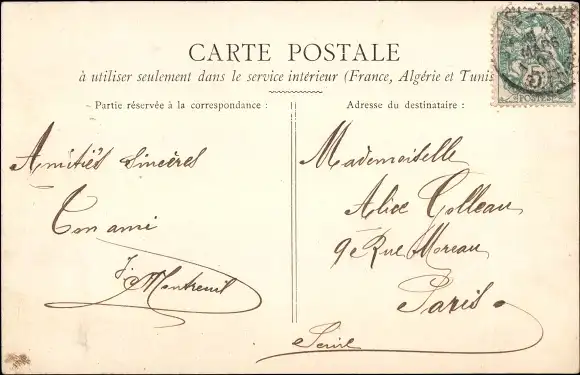 CARTE POSTALE
à utiliser seulement dans le service intérieur (France, Algérie et Tunis
Partie réservée à la correspondance :
Amitiés sincères
Ton ami
J. Montreuil
Adresse du destinataire :
Mademoiselle
Alice Colleau
9 Rue Moreau
Paris
Seine
POSTES